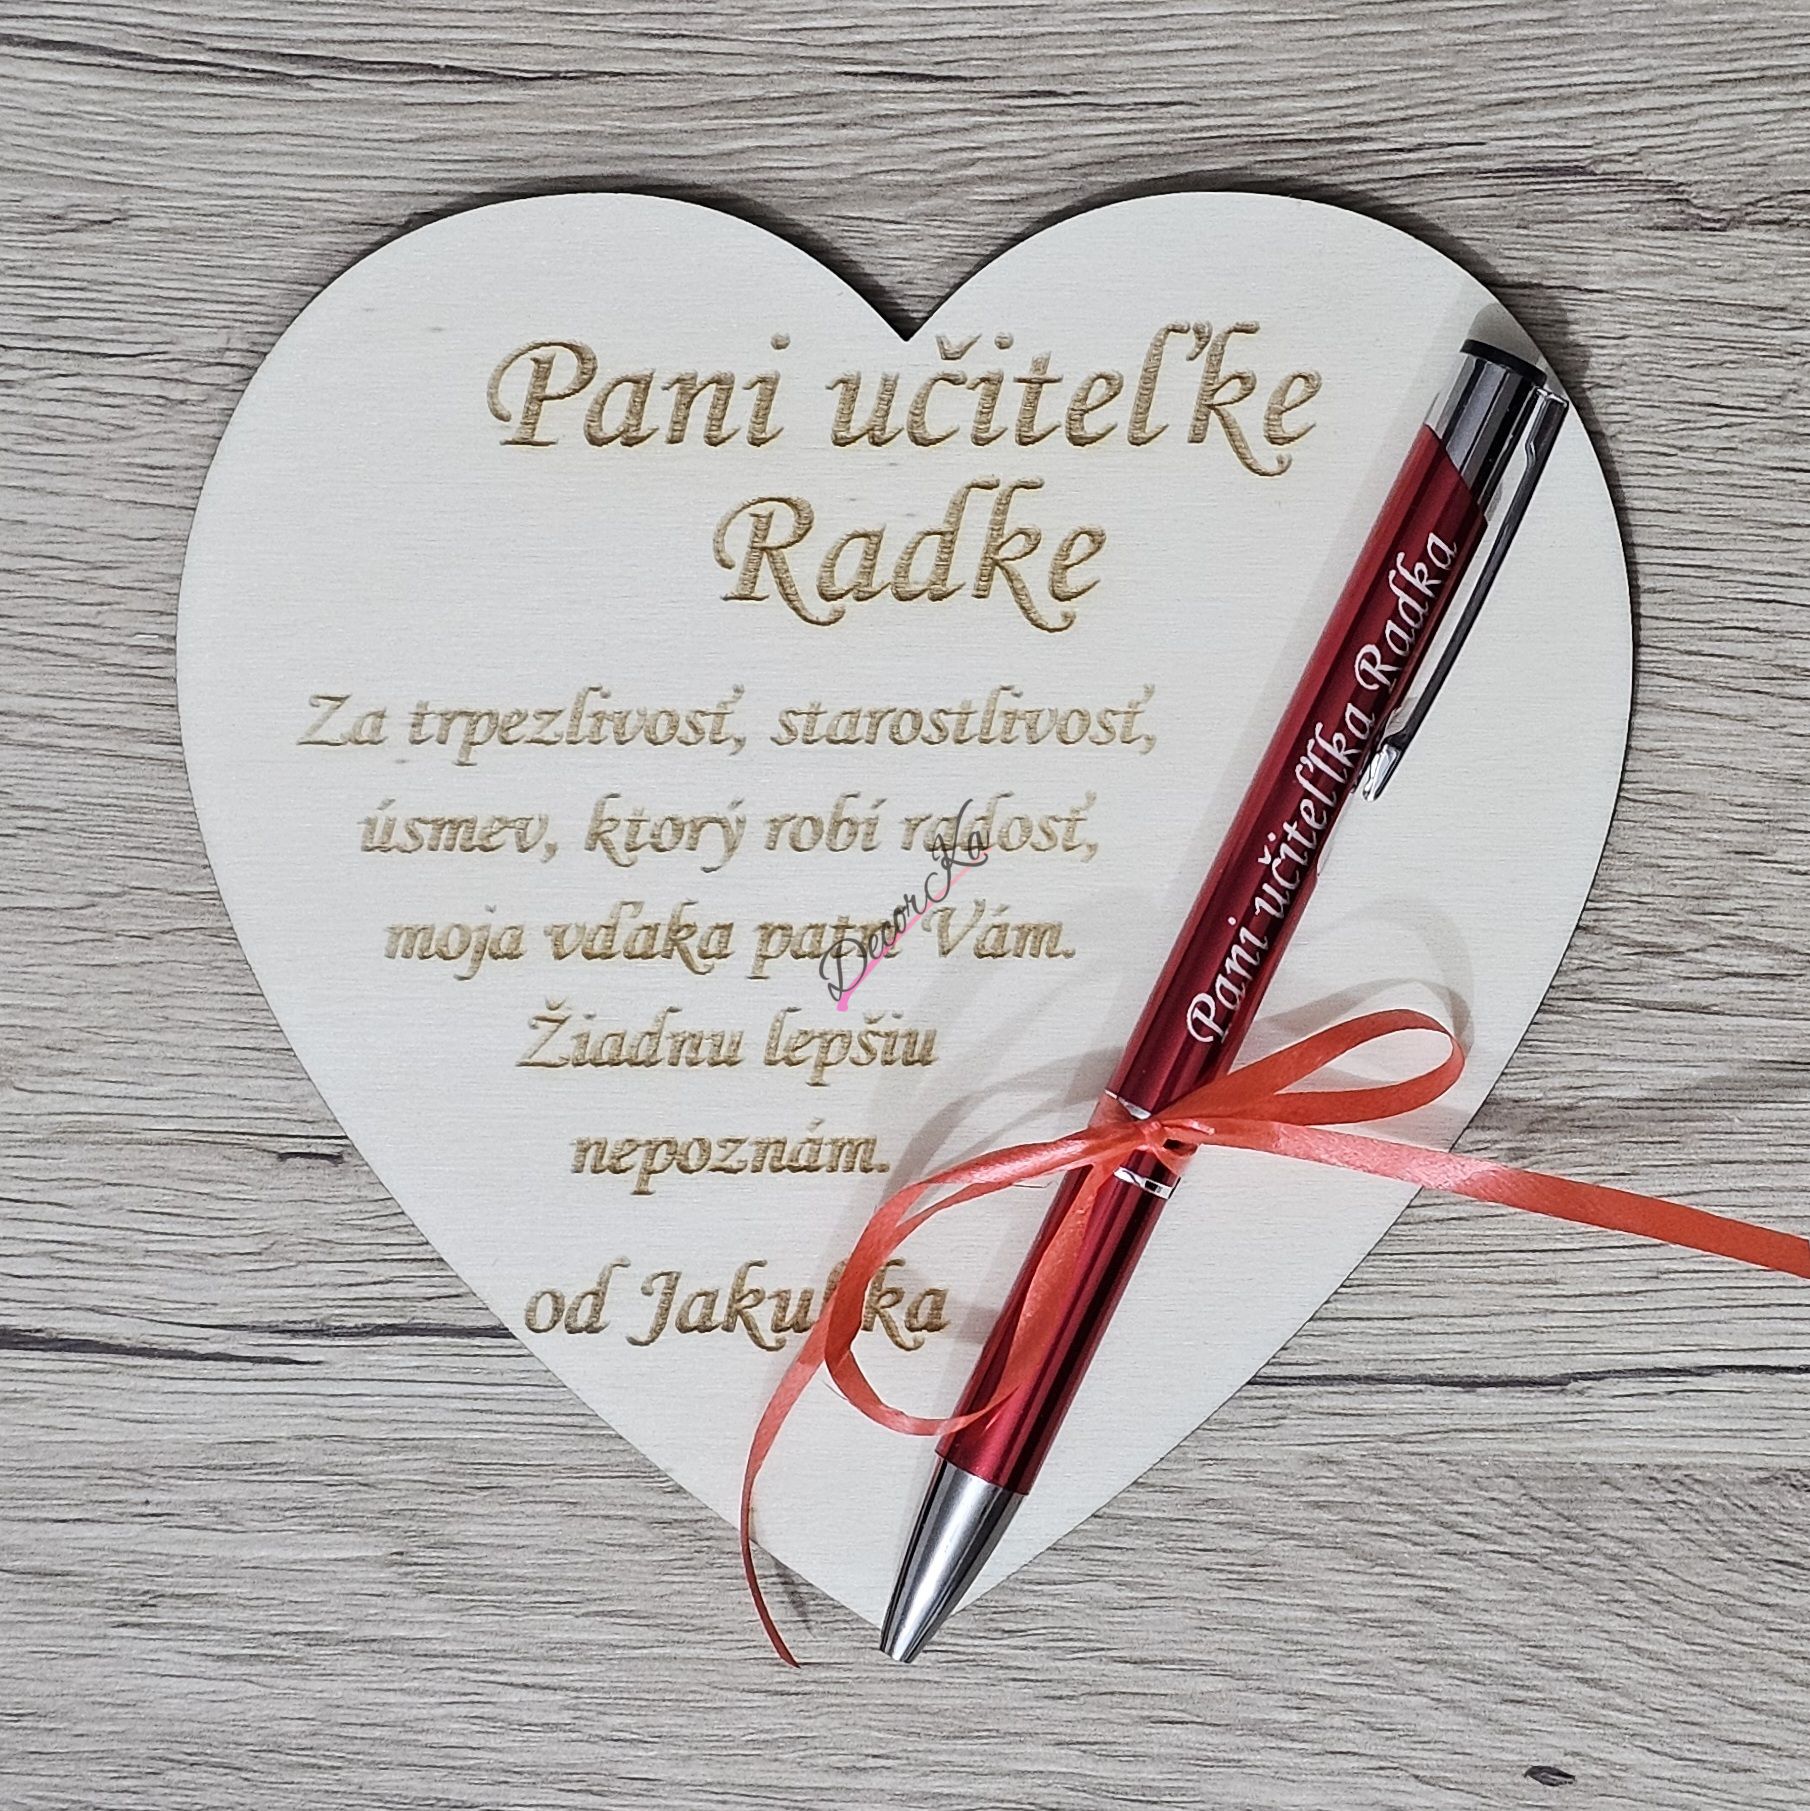 Pani učiteľke
Radke
Za trpezlivosť, starostlivosť,
úsmev, ktorý robí radosť,
moja vďaka patrí Vám.
Žiadnu lepšiu
nepoznám.
od Jakubka
Pani učiteľka Radka
DecorKa